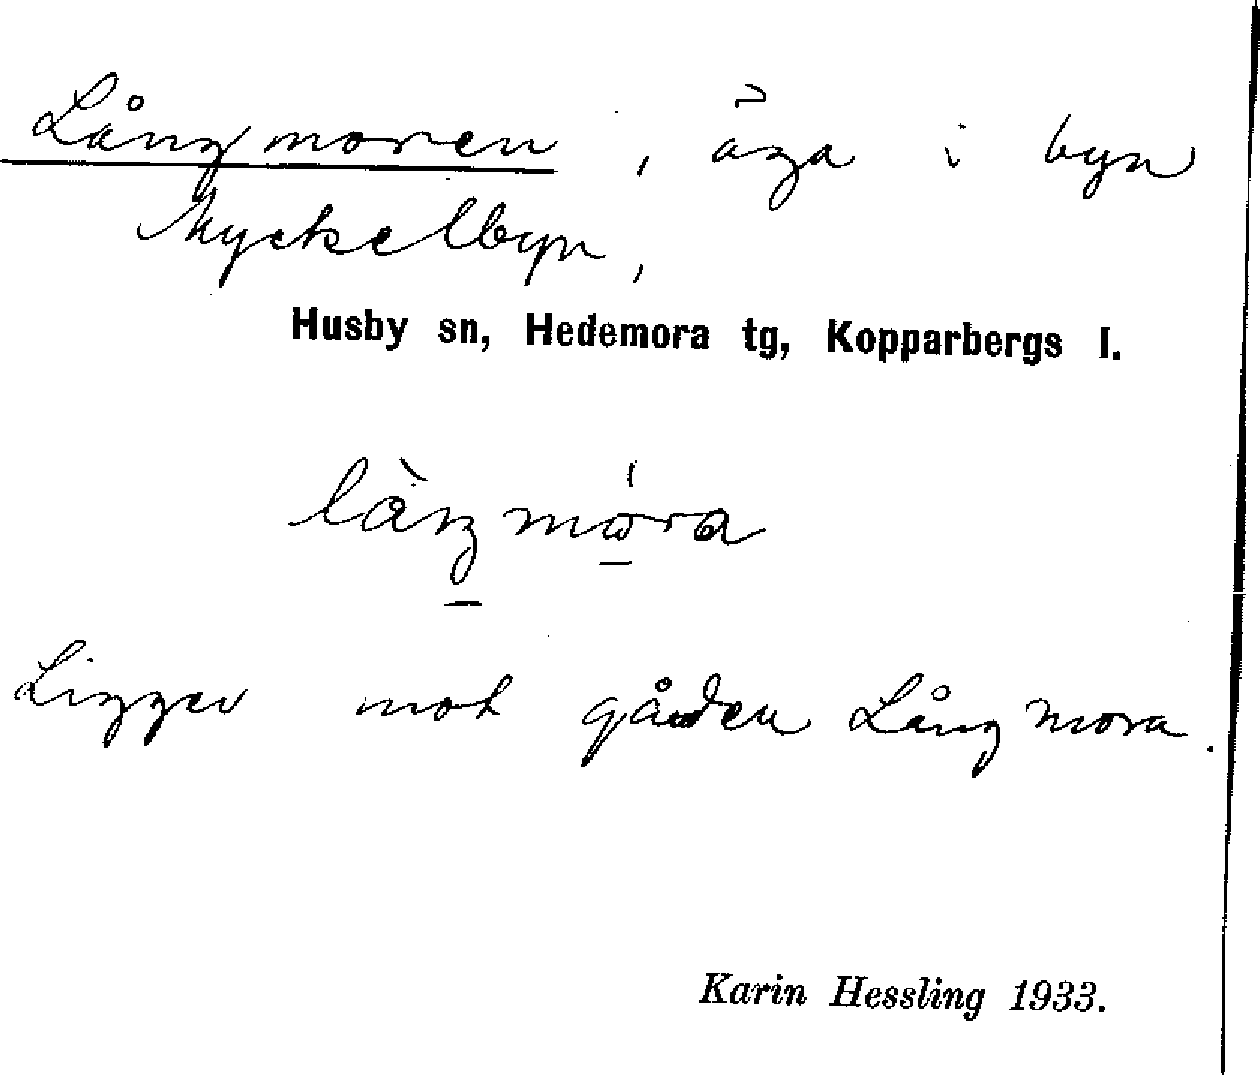 Långmoren, äga i byn
Myckelbyn,
Husby sn, Hedemora tg, Kopparbergs l.
Ligger mot gården Långmora.
Karin Hessling 1933.